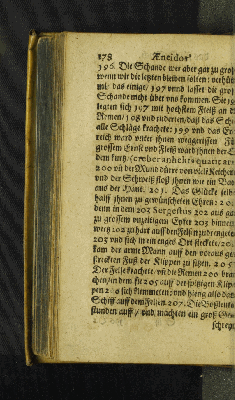 178 Æneidos
196. Die Schande wer aber gar zu groß
wenn wir die letzten bleiben solten: verhüt
mi: das einige/ 197 vnnd lasset die gros
Schande nicht über vns kommen. Sie 19
legten sich 197 mit höchstem Fleiß an d
Remen/ 198 vnd ruderten/ daß das Sch
alle Schläge krachete: 199 vnd das Er
reich vnter ihnen
grossem Ernst vnd Fleiß ward ihnen der
dem kurtz/ (creber anhelitus quatit ar
200 vnd der Mund dürre von
vnd der Schweiß floß ihnen wie ein Ba
aus der Haut. 201. Das Glücke selb
halff ihnen zu gewünscheten Ehren: 20
denn in dem 203 Sergestus 202 aus gan
zu grossem vnzeitigem Eyfer 203 binnen
werts 202 zu hart auff den Felsen zudrengete
203 vnd sich in ein enges Ort steckete/ 20
kam der arme Mann auff den voraus ge
streckten Fuß der Klippen zu sitzen. 205
Der Felß krachete/ vnd die Remen 200 bra
chen/ in dem sie 205 auff der spitzigen Klip
pen 206 sich klemmeten: vnd hieng also das
Schiff auff dem Felsen. 207. Die Boßleute
stunden auff/ vnd machten ein groß Ge
schrey